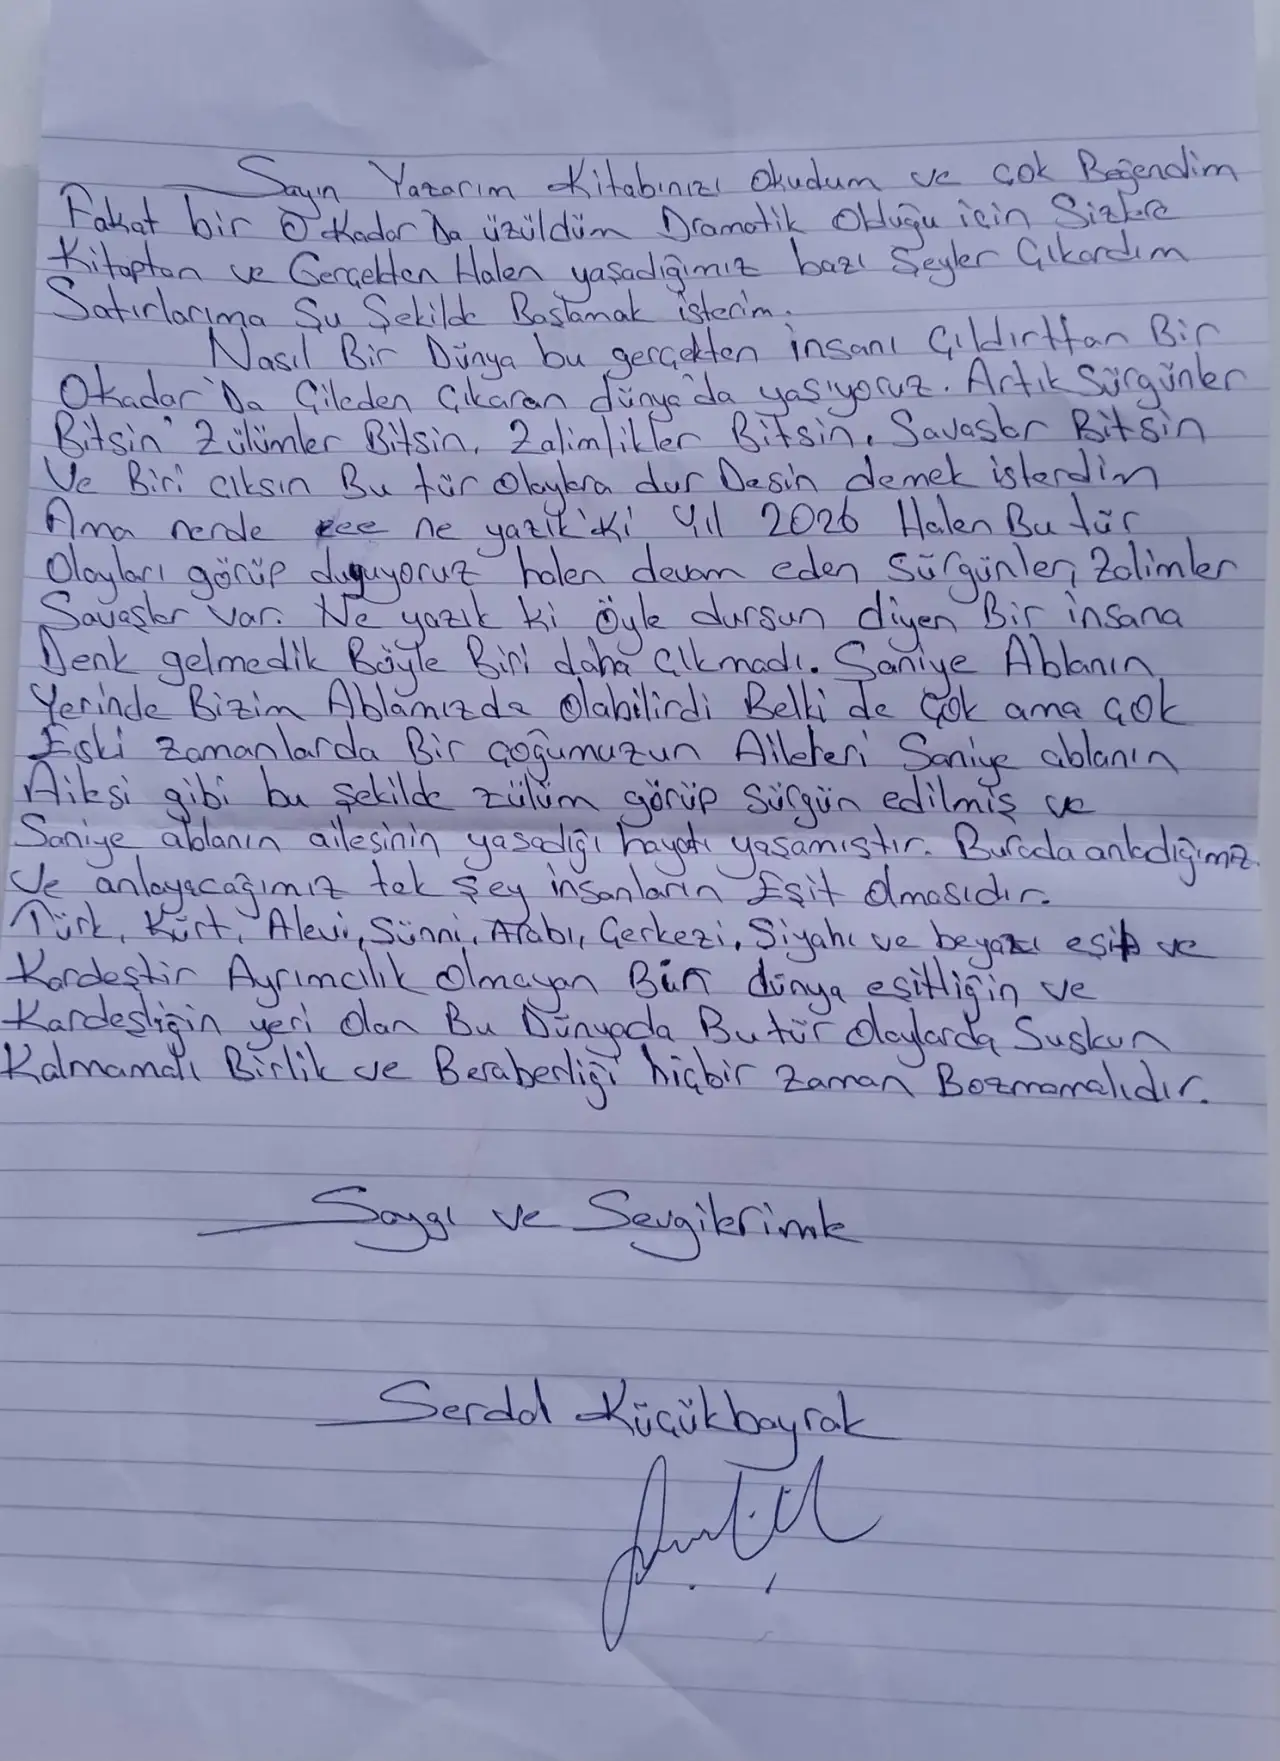 Sayın Yazarım Kitabınızı Okudum ve çok Beğendim
Fakat bir O Kadar Da üzüldüm Dramatik Olduğu için Sizlere
Kitaptan ve Gerçekten Halen yaşadığımız bazı Şeyler Çıkardım
Satırlarıma Şu Şekilde Başlamak isterim.
Nasıl Bir Dünya bu gerçekten insanı Çıldırttan Bir
Okadar'Da Çileden Çıkaran dünya'da yaşıyoruz. Artık Sürgünler
Bitsin' Zülümler Bitsin, Zalimlikler Bitsin, Savaşlar Bitsin
Ve Biri çıksın Bu tür Olaylara dur Desin demek isterdim
Ama nerde ne yazık'ki Yıl 2026 Halen Bu tür
Olayları görüp duyuyoruz halen devam eden Sürgünler, Zalimler
Savaşlar var. Ne yazık ki öyle dursun diyen Bir insana
Denk gelmedik Böyle Biri daha çıkmadı. Saniye Ablanın
Yerinde Bizim Ablamızda Olabilirdi Belki de Çok ama çok
Eski zamanlarda Bir çoğumuzun Aileleri Saniye ablanın
Ailesi gibi bu şekilde zülüm görüp sürgün edilmiş ve
Saniye ablanın ailesinin yaşadığı hayatı yaşamıştır. Burada anladığımız
Ve anlayacağımız tek Şey insanların Eşit Olmasıdır.
Türk, Kürt, Alevi, Sünni, Arabı, Çerkezi, Siyahı ve beyazı eşit ve
Kardeştir Ayrımcılık Olmayan Bir dünya eşitliğin ve
Kardeşliğin yeri olan Bu Dünyada Bu tür Olaylarda Suskun
Kalmamalı Birlik ve Beraberliği hiçbir zaman Bozmamalıdır.
Saygı ve Sevgilerimle
Serdal Küçükbayrak